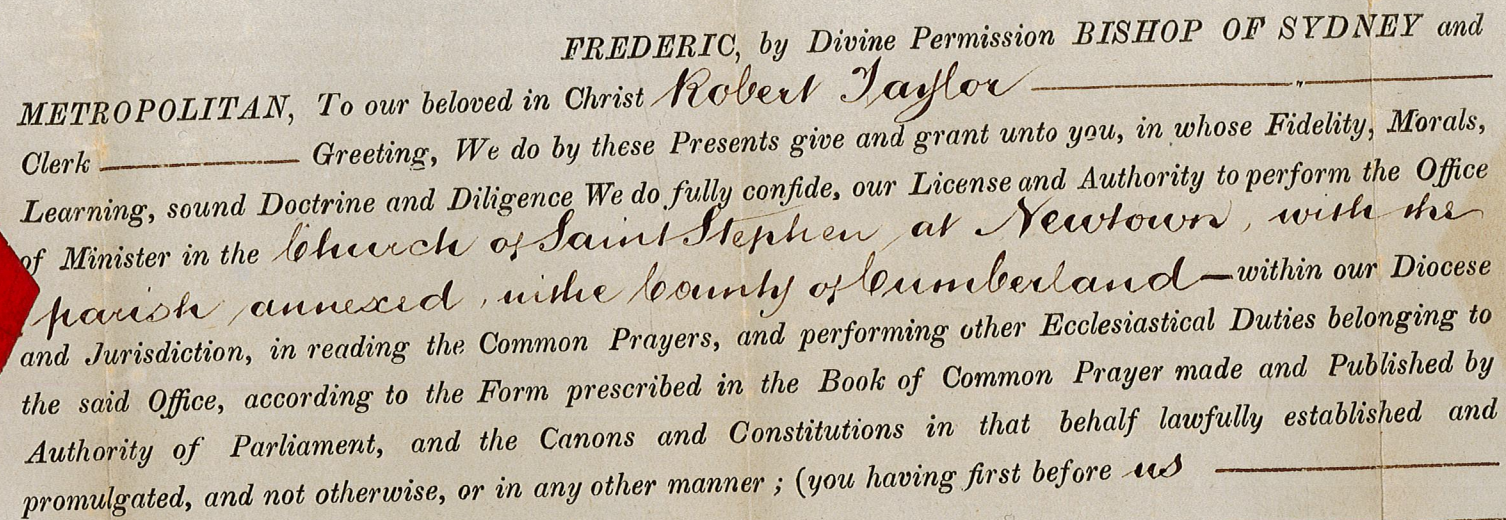 FREDERIC, by Divine Permission BISHOP OF SYDNEY and
METROPOLITAN, To our beloved in Christ Robert Taylor
Clerk Greeting, We do by these Presents give and grant unto you, in whose Fidelity, Morals,
Learning, sound Doctrine and Diligence We do fully confide, our License and Authority to perform the Office
of Minister in the Church of Saint Stephen at Newtown, with the
parish annexed, in the County of Cumberland within our Diocese
and Jurisdiction, in reading the Common Prayers, and performing other Ecclesiastical Duties belonging to
the said Office, according to the Form prescribed in the Book of Common Prayer made and Published by
Authority of Parliament, and the Canons and Constitutions in that behalf lawfully established and
promulgated, and not otherwise, or in any other manner ; (you having first before us